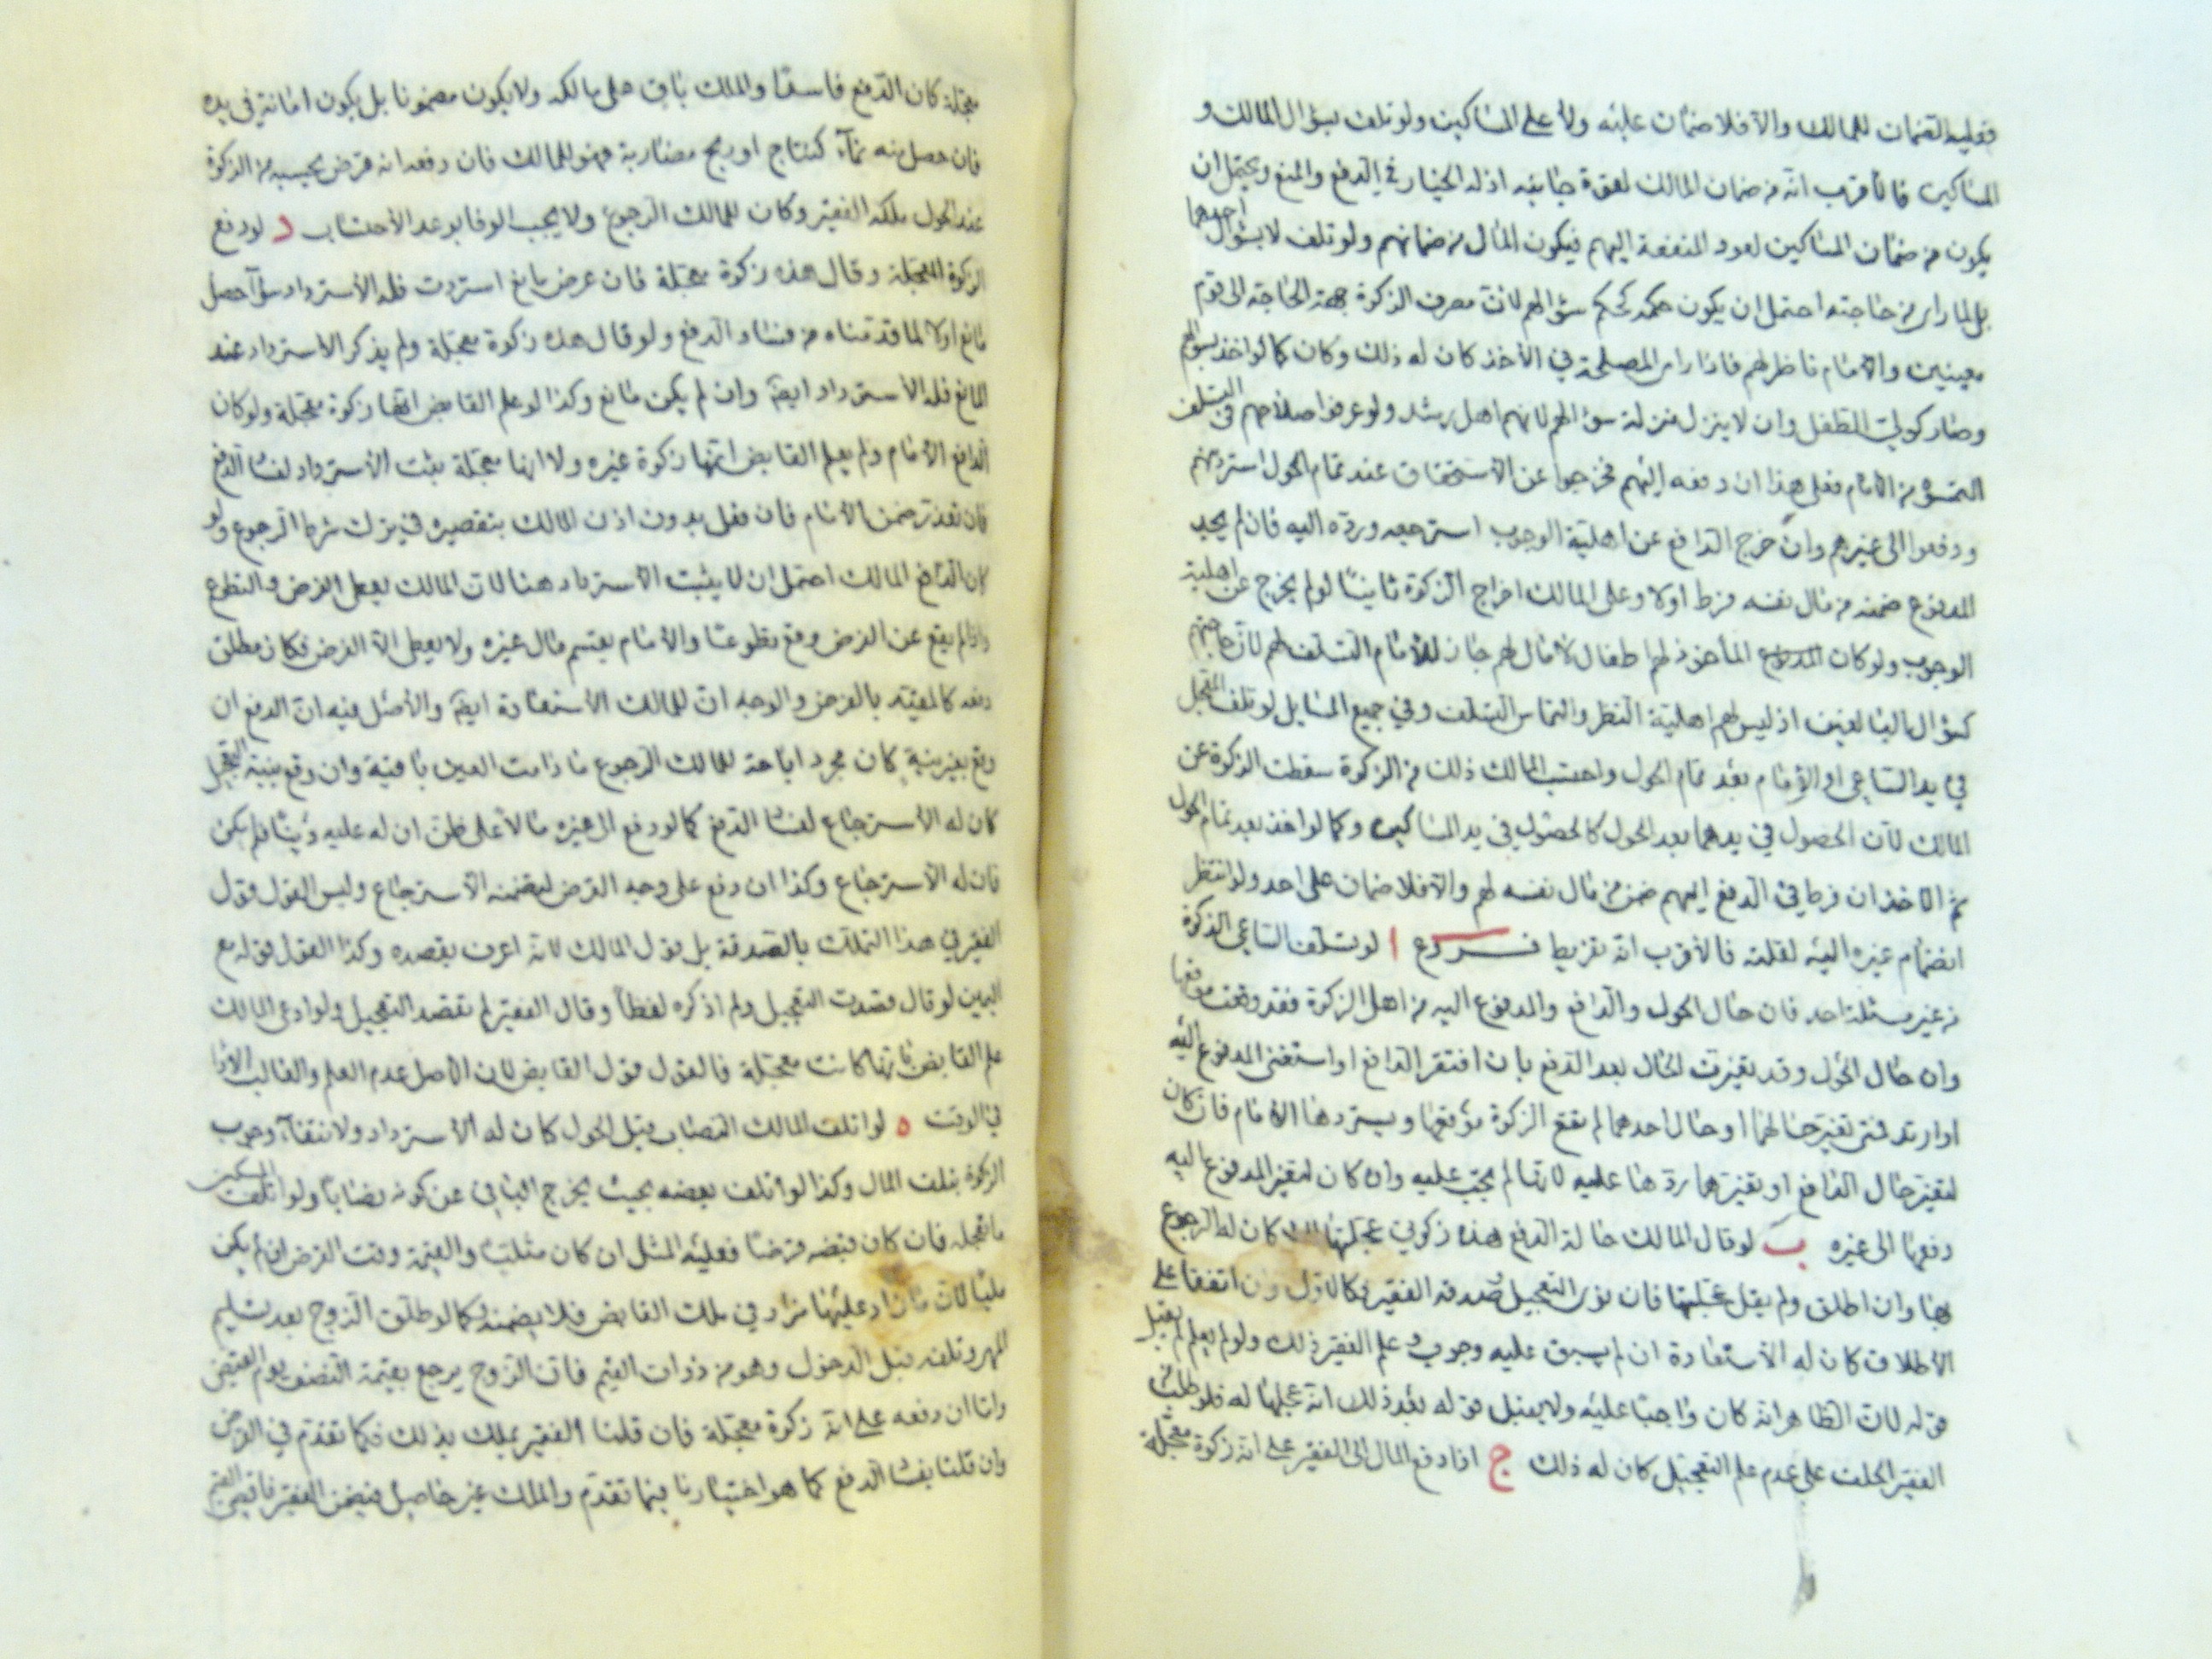 فعليه الضمان للمالك والا فلا ضمان عليه ولا على المساكين ولو تلف بسؤال المالك و
المساكين فالاقرب انه من ضمان المالك لقوة جانبه اذ له الخيار في الدفع والمنع ويحتمل ان
يكون من ضمان المساكين لعود المنفعة اليهم فيكون المال من ضمانهم ولو تلف لا بسؤال احدهما
بل لما راى من حاجته احتمل ان يكون حكمه كحكم سؤالهم لان مصرف الزكوة جهة الحاجة لا قوم
معينين والامام ناظر لهم فاذا راى المصلحة في الأخذ كان له ذلك وكان كما لو اخذ بسؤالهم
وصار كولي الطفل وان لا ينزل منزلة سؤالهم لانهم اهل رشد ولو عرفوا صلاحهم في التسلف
التمسوه من الامام فعلى هذا ان دفعه اليهم فخرجوا عن الاستحقاق عند تمام الحول استرد منهم
ودفعوا الى غيرهم وان خرج الدافع عن اهلية الوجوب استرجعه ورده اليه فان لم يجد
المدفوع ضمنه من مال نفسه فرط اولا وعلى المالك اخراج الزكوة ثانيًا لو لم يخرج عن اهلية
الوجوب ولو كان المأخوذ لهم اطفال لا مال لهم جاز للامام التسلف لهم لان حاجتهم
كسؤال البالغين اذ ليس لهم اهلية النظر والتماس التسلف وفي جميع المسايل لو تلف المعجل
في يد الساعي او الامام بعد تمام الحول واحتسب المالك ذلك من الزكوة سقطت الزكوة عن
المالك لان الحصول في يدهما بعد الحول كالحصول في يد المساكين وكما لو اخذ بعد تمام الحول
ثم الاخذ ان فرط في الدفع اليهم ضمن من مال نفسه لهم والا فلا ضمان على احد ولو انتظر
انضمام غيره اليه لقلته فالأقرب انه تفريط فروع ا لو تسلف الساعي الزكوة
من غير مسئلة احد فان حال الحول والدافع والمدفوع اليه من اهل الزكوة فقد وقعت موقعها
وان حال الحول وقد تغيرت الحال بعد الدفع بان افتقر الدافع او استغنى المدفوع اليه
او ارتد فمتى تغير حالهما او حال احدهما لم تقع الزكوة موقعها ويستردها الامام فان كان
لتغير حال الدافع او تغيرهما ردها عليه لانها لم تجب عليه وان كان لتغير المدفوع اليه
دفعها الى غيره ب لو قال المالك حالة الدفع هذه زكوتي عجلتها كان له الرجوع
هنا وان اطلق ولم يقل عجلتها فان نوى التعجيل وصدقه الفقير فكالاول وان اتفقا على
الاطلاق كان له الاستعادة ان لم يسبق عليه وجوب وعلم الفقير ذلك ولو لم يعلم لم يقبل
قوله لان الظاهر انه كان واجبًا عليه ولا يقبل قوله بعد ذلك انه عجلها له فلو طلب
الفقير الحلف على عدم علم التعجيل كان له ذلك ج اذا دفع المال الى الفقير على انه زكوة معجلة
معجلة كان الدفع فاسدًا والملك باق على مالكه ولا يكون مضمونا بل يكون امانة في يده
فان حصل منه نماء كنتاج او ربح مضاربة فهو للمالك فان دفعه انه قرض يحسبه من الزكوة
عند الحول ملكه الفقير وكان للمالك الرجوع ولا يجب الوفا بوعد الأحتساب د لو دفع
الزكوة المعجلة وقال هذه زكوة معجلة فان عرض مانع استردت فله الأسترداد سواء حصل
مانع اولا لما قدمناه من فساد الدفع ولو قال هذه زكوة معجلة ولم يذكر الاسترداد عند
المانع فله الأسترداد ايضًا وان لم يكن مانع وكذا لو علم القابض انها زكوة معجلة ولو كان
الدافع الامام ولم يعلم القابض انها زكوة غيره ولا انها معجلة يثبت الأسترداد لفساد الدفع
فان تعذر ضمن الامام فان فعل بدون اذن المالك بتقصيره في ترك شرط الرجوع ولو
كان الدافع المالك احتمل ان لا يثبت الأسترداد هنا لان المالك يعطي الفرض والتطوع
واذا لم يقع عن الفرض وقع تطوعًا والامام يقسم مال غيره ولا يعطي الا الفرض فكان مطلق
دفعه كالمقيد بالفرض والوجه ان للمالك الأستعادة ايضًا والأصل فيه ان الدفع ان
وقع بغير نية كان مجرد اباحة للمالك الرجوع ما دامت العين باقية وان وقع بنية التعجيل
كان له الأسترجاع لفساد الدفع كما لو دفع الى غيره مالا على ظن ان له عليه دينًا فلم يكن
فان له الأسترجاع وكذا ان دفع على وجه القرض لتضمنه الأسترجاع وليس القول قول
الفقير في هذا التملك بالصدقة بل قول المالك لانه اعرف بقصده وكذا القول قوله مع
اليمين لو قال قصدت التعجيل ولم اذكره لفظًا وقال الفقير لم تقصد التعجيل ولو ادعى المالك
علم القابض بانها كانت معجلة فالقول قول القابض لان الأصل عدم العلم والغالب الأداء
في الوقت ه لو اتلف المالك النصاب قبل الحول كان له الأسترداد ولانتفاء وجوب
الزكوة بتلف المال وكذا لو اتلف بعضه بحيث يخرج الباقي عن كونه نصابًا ولو اتلف المسكين
ما تعجله فان كان قبضه قرضًا فعليه المثل ان كان مثليًا والقيمة وقت القرض ان لم يكن
مثليا لان ما زاد عليها زاد في ملك القابض فلا يضمنه كما لو طلق الزوج بعد تسليم
المهر وتلفه قبل الدخول وهو من ذوات القيم فان الزوج يرجع بقيمة النصف يوم القبض
واما ان دفعه على انه زكوة معجلة فان قلنا الفقير يملك بذلك فكما تقدم في القرض
وان قلنا بفساد الدفع كما هو اختيارنا فيما تقدم والملك غير حاصل فيضمن الفقير